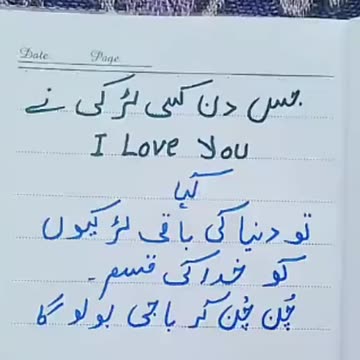 Date Page
جس دن کسی لڑکی نے
I Love You
کہا
تو دنیا کی باقی لڑکیوں
کو خدا کی قسم۔
چُن چُن کر باجی بولوں گا